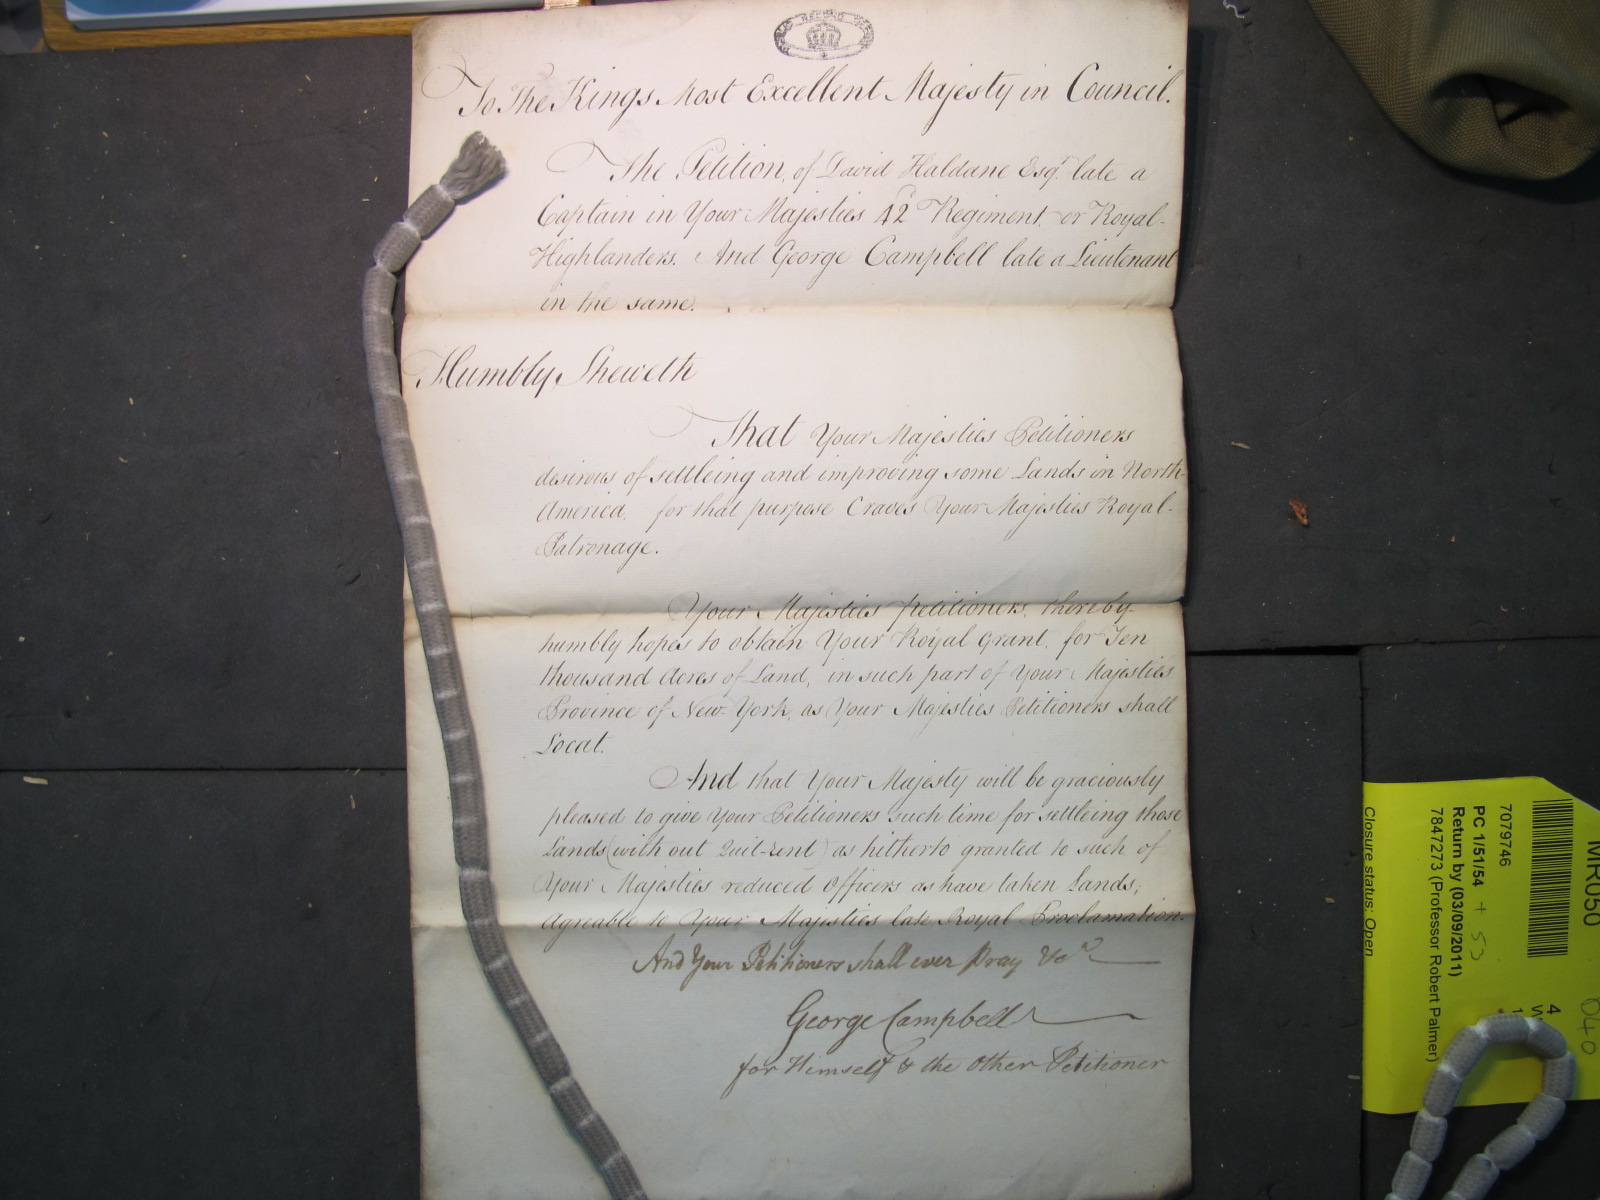 PUBLIC RECORD OFFICE
To The Kings Most Excellent Majesty in Council.
The Petition, of David Haldane Esqr. late a
Captain in Your Majesties 42d Regiment or Royal-
Highlanders. And George Campbell late a Lieutenant
in the same.
Humbly Sheweth
That Your Majesties Petitioners
desirous of settleing and improving some Lands in North
America, for that purpose Craves Your Majesties Royal-
Patronage.
Your Majesties petitioners, thereby
humbly hopes to obtain Your Royal Grant, for Ten
thousand Acres of Land, in such part of Your Majesties
Province of New-York, as Your Majesties Petitioners shall
Locat.
And that Your Majesty will be graciously
pleased to give Your Petitioners such time for settleing those
Lands (with out Quit-rent) as hitherto granted to such of
Your Majesties reduced Officers as have taken Lands,
agreable to Your Majesties late Royal Proclamation.
And Your Petitioners shall ever Pray &ca
George Campbell
for Himself & the Other Petitioner
MR050
040
7079746
PC 1/51/54 + 53
Return by (03/09/2011)
7847273 (Professor Robert Palmer)
Closure status: Open